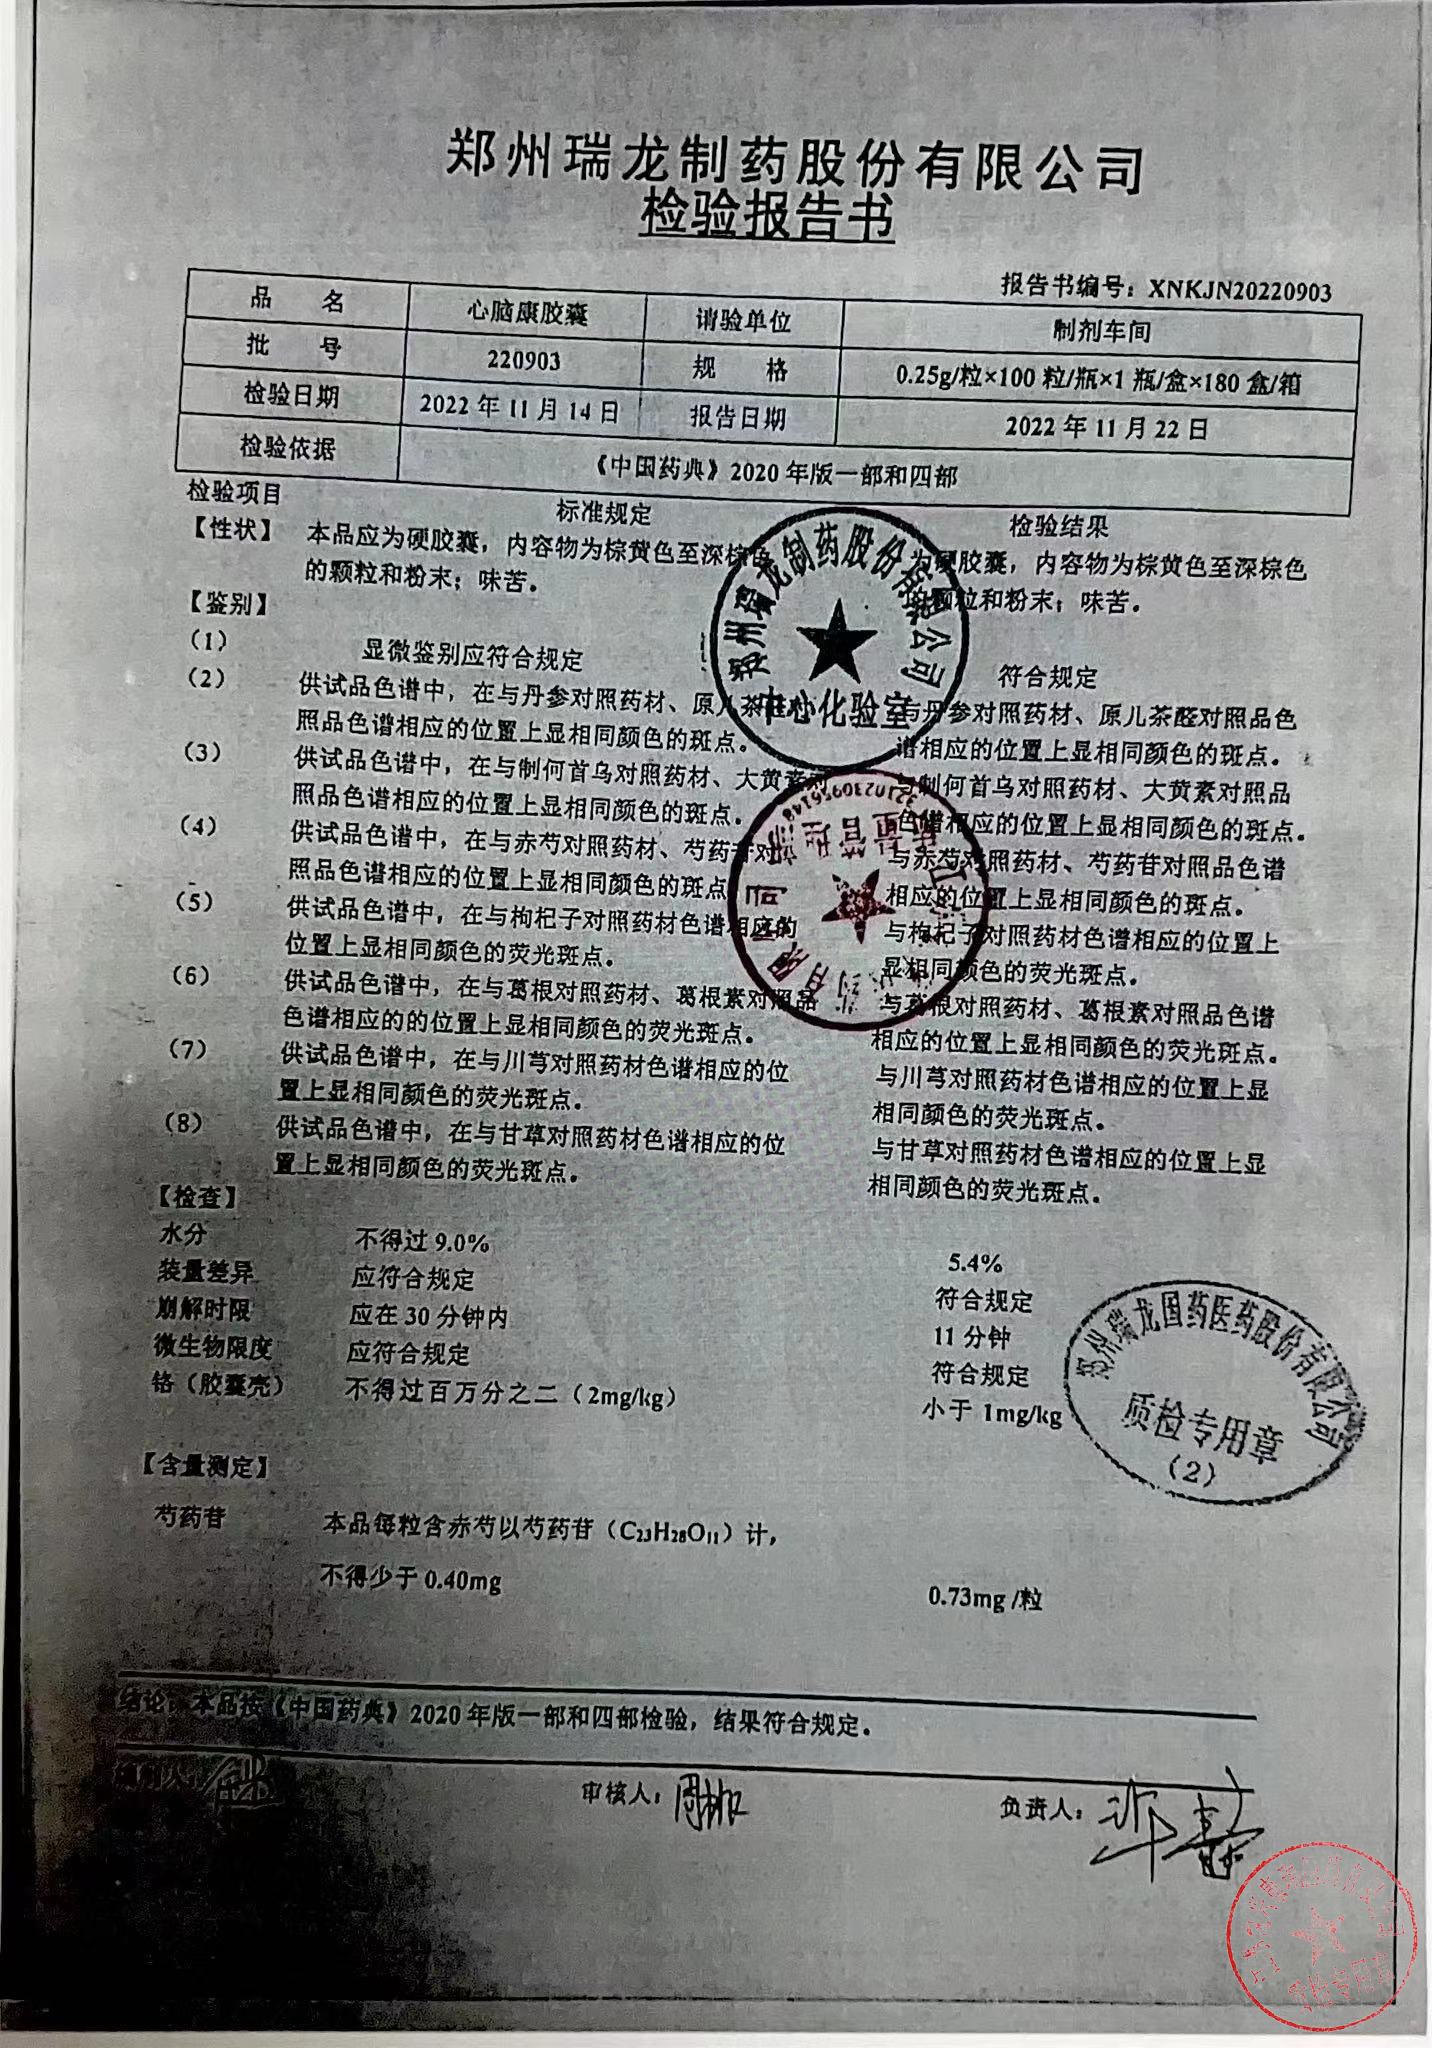 郑州瑞龙制药股份有限公司
检验报告书
报告书编号：XNKJN20220903
品 名 心脑康胶囊 请验单位 制剂车间
批 号 220903 规 格 0.25g/粒×100粒/瓶×1瓶/盒×180盒/箱
检验日期 2022年11月14日 报告日期 2022年11月22日
检验依据 《中国药典》2020年版一部和四部
检验项目 标准规定 检验结果
【性状】 本品应为硬胶囊，内容物为棕黄色至深棕色 为硬胶囊，内容物为棕黄色至深棕色
的颗粒和粉末；味苦。 的颗粒和粉末；味苦。
【鉴别】
（1） 显微鉴别应符合规定 符合规定
（2） 供试品色谱中，在与丹参对照药材、原儿茶 与丹参对照药材、原儿茶醛对照品色
照品色谱相应的位置上显相同颜色的斑点。 谱相应的位置上显相同颜色的斑点。
（3） 供试品色谱中，在与制何首乌对照药材、大黄素对 与制何首乌对照药材、大黄素对照品
照品色谱相应的位置上显相同颜色的斑点。 色谱相应的位置上显相同颜色的斑点。
（4） 供试品色谱中，在与赤芍对照药材、芍药苷对 与赤芍对照药材、芍药苷对照品色谱
照品色谱相应的位置上显相同颜色的斑点 相应的位置上显相同颜色的斑点。
（5） 供试品色谱中，在与枸杞子对照药材色谱相应的 与枸杞子对照药材色谱相应的位置上
位置上显相同颜色的荧光斑点。 显相同颜色的荧光斑点。
（6） 供试品色谱中，在与葛根对照药材、葛根素对照品 与葛根对照药材、葛根素对照品色谱
色谱相应的的位置上显相同颜色的荧光斑点。 相应的位置上显相同颜色的荧光斑点。
（7） 供试品色谱中，在与川芎对照药材色谱相应的位 与川芎对照药材色谱相应的位置上显
置上显相同颜色的荧光斑点。 相同颜色的荧光斑点。
（8） 供试品色谱中，在与甘草对照药材色谱相应的位 与甘草对照药材色谱相应的位置上显
置上显相同颜色的荧光斑点。 相同颜色的荧光斑点。
【检查】
水分 不得过9.0% 5.4%
装量差异 应符合规定 符合规定
崩解时限 应在30分钟内 11分钟
微生物限度 应符合规定 符合规定
铬（胶囊壳） 不得过百万分之二（2mg/kg） 小于1mg/kg
【含量测定】
芍药苷 本品每粒含赤芍以芍药苷（C₂₃H₂₈O₁₁）计，
不得少于0.40mg 0.73mg/粒
结论：本品按《中国药典》2020年版一部和四部检验，结果符合规定。
审核人： 负责人：
郑州瑞龙制药股份有限公司
中心化验室
质量管理部
郑州瑞龙国药医药股份有限公司
质检专用章
（2）